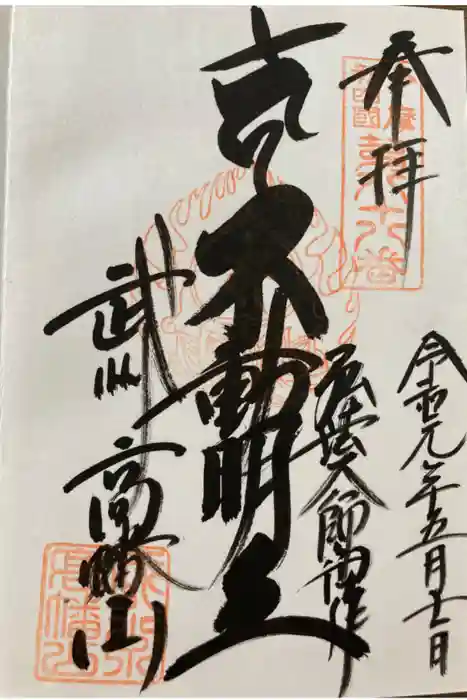 奉拝
令和元年五月十一日
弘法大師御作
不動明王
武州
高幡山